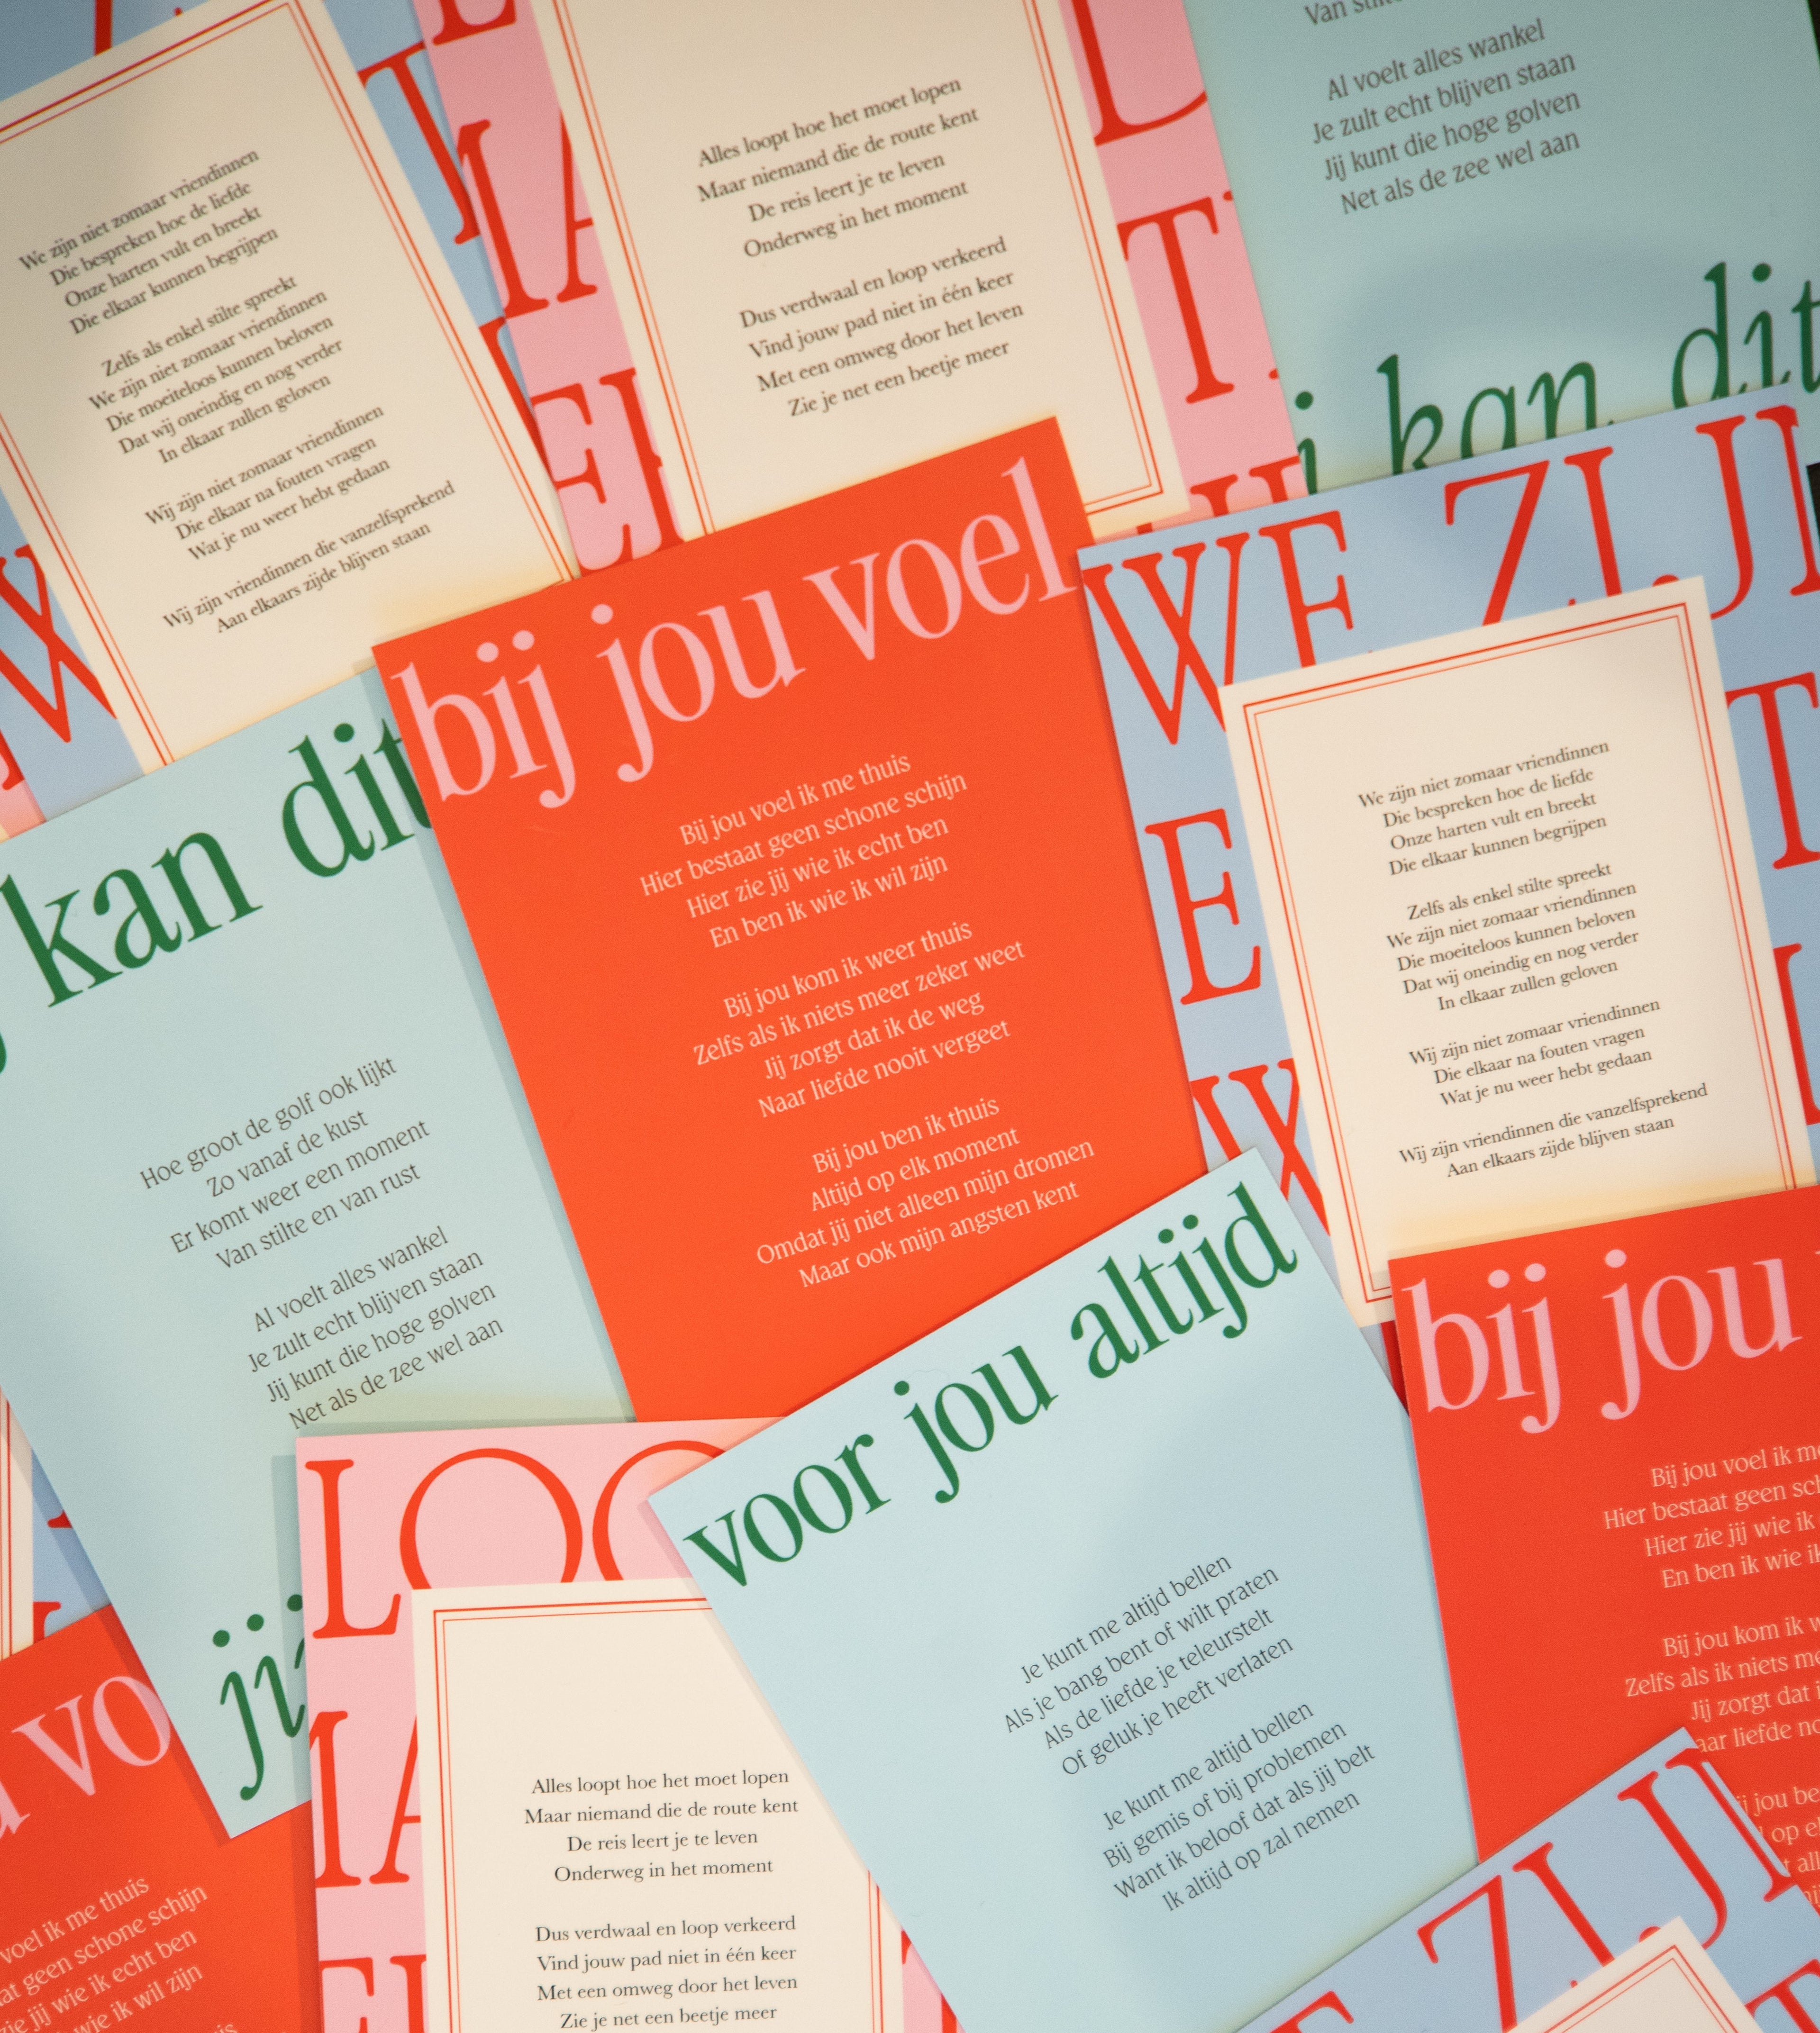 We zijn niet zomaar vriendinnen
Die bespreken hoe de liefde
Onze harten vult en breekt
Die elkaar kunnen begrijpen
Zelfs als enkel stilte spreekt
We zijn niet zomaar vriendinnen
Die moeiteloos kunnen beloven
Dat wij oneindig en nog verder
In elkaar zullen geloven
Wij zijn niet zomaar vriendinnen
Die elkaar na fouten vragen
Wat je nu weer hebt gedaan
Wij zijn vriendinnen die vanzelfsprekend
Aan elkaars zijde blijven staan
Alles loopt hoe het moet lopen
Maar niemand die de route kent
De reis leert je te leven
Onderweg in het moment
Dus verdwaal en loop verkeerd
Vind jouw pad niet in één keer
Met een omweg door het leven
Zie je net een beetje meer
Van
Al voelt alles wankel
Je zult echt blijven staan
Jij kunt die hoge golven
Net als de zee wel aan
kan dit
bij jou voel
Bij jou voel ik me thuis
Hier bestaat geen schone schijn
Hier zie jij wie ik echt ben
En ben ik wie ik wil zijn
Bij jou kom ik weer thuis
Zelfs als ik niets meer zeker weet
Jij zorgt dat ik de weg
Naar liefde nooit vergeet
Bij jou ben ik thuis
Altijd op elk moment
Omdat jij niet alleen mijn dromen
Maar ook mijn angsten kent
WE ZIJN
T
E
We zijn niet zomaar vriendinnen
Die bespreken hoe de liefde
Onze harten vult en breekt
Die elkaar kunnen begrijpen
Zelfs als enkel stilte spreekt
We zijn niet zomaar vriendinnen
Die moeiteloos kunnen beloven
Dat wij oneindig en nog verder
In elkaar zullen geloven
Wij zijn niet zomaar vriendinnen
Die elkaar na fouten vragen
Wat je nu weer hebt gedaan
Wij zijn vriendinnen die vanzelfsprekend
Aan elkaars zijde blijven staan
kan dit
Hoe groot de golf ook lijkt
Zo vanaf de kust
Er komt weer een moment
Van stilte en van rust
Al voelt alles wankel
Je zult echt blijven staan
Jij kunt die hoge golven
Net als de zee wel aan
voor jou altijd
Je kunt me altijd bellen
Als je bang bent of wilt praten
Als de liefde je teleurstelt
Of geluk je heeft verlaten
Je kunt me altijd bellen
Bij gemis of bij problemen
Want ik beloof dat als jij belt
Ik altijd op zal nemen
bij jou
Bij jou voel ik
Hier bestaat geen
Hier zie jij wie ik
En ben ik wie
Bij jou kom ik
Zelfs als ik niets
Jij zorgt dat
liefde
jou
op
LOO
MA
Alles loopt hoe het moet lopen
Maar niemand die de route kent
De reis leert je te leven
Onderweg in het moment
Dus verdwaal en loop verkeerd
Vind jouw pad niet in één keer
Met een omweg door het leven
Zie je net een beetje meer
vo
voel ik me thuis
geen schone schijn
jij wie ik echt ben
wie ik wil zijn
ZIJN